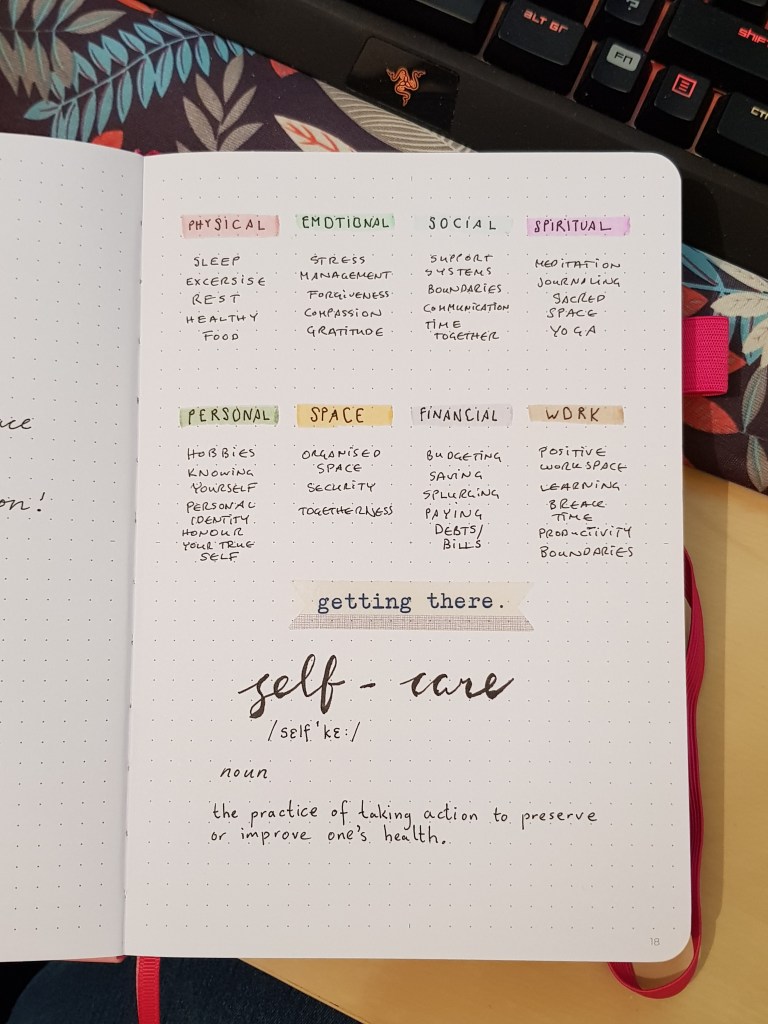 ALT GR
FN
?
SHIF
CTR
PHYSICAL
SLEEP
EXCERSISE
REST
HEALTHY
FOOD
EMOTIONAL
STRESS
MANAGEMENT
FORGIVENESS
COMPASSION
GRATITUDE
SOCIAL
SUPPORT
SYSTEMS
BOUNDARIES
COMMUNICATION
TIME
TOGETHER
SPIRITUAL
MEDITATION
JOURNALING
SACRED
SPACE
YOGA
PERSONAL
HOBBIES
KNOWING
YOURSELF
PERSONAL
IDENTITY
HONOUR
YOUR TRUE
SELF
SPACE
ORGANISED
SPACE
SECURITY
TOGETHERNESS
FINANCIAL
BUDGETING
SAVING
SPLURGING
PAYING
DEBTS/
BILLS
WORK
POSITIVE
WORKSPACE
LEARNING
BREAK
TIME
PRODUCTIVITY
BOUNDARIES
on!
getting there.
self-care
/sɛlf'kɛː/
noun
the practice of taking action to preserve
or improve one's health.
18